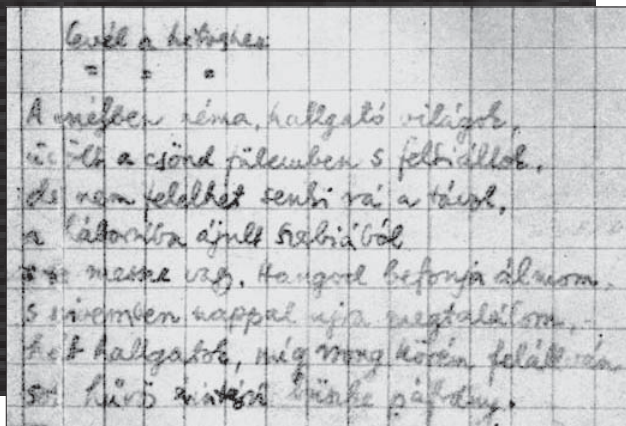 Levél a hitveshez
A mélyben néma, hallgató világok,
üvölt a csönd fülemben s felkiáltok,
de nem felelhet senki rá a távol,
a háborúba ájult Szerbiából
s te messze vagy. Hangod befonja álmom,
s szivemben nappal ujra megtalálom, -
hát hallgatok, míg zsong körém felállván
sok hűvös érintésü büszke páfrány.